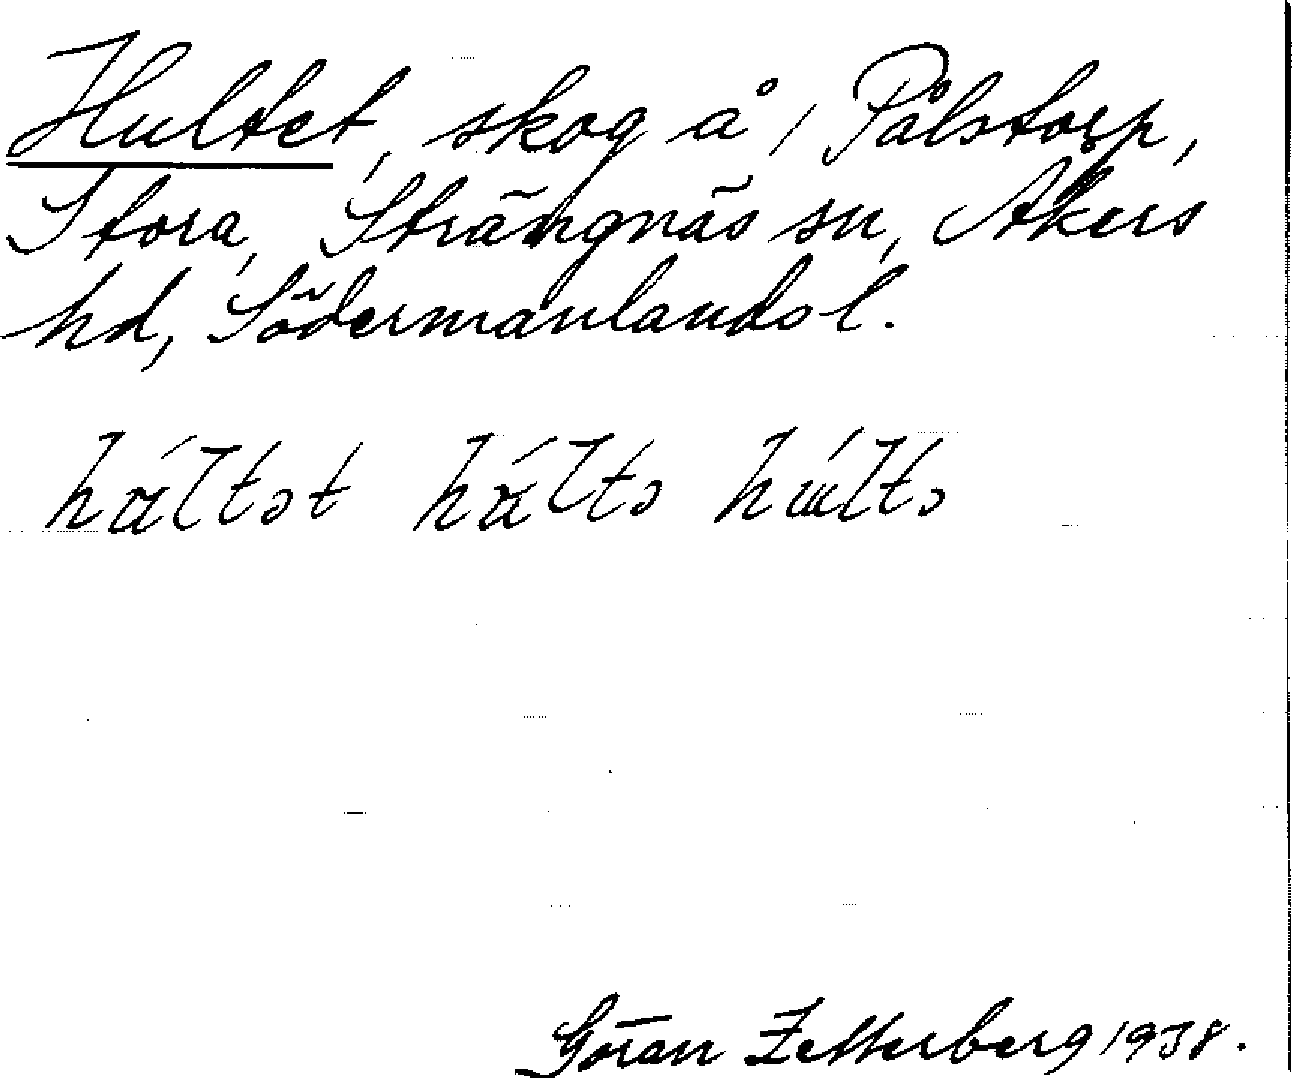 Hultet, skog å 1 Pålstorp,
Stora, Strängnäs sn, Åkers
hd, Södermanlands l.
Göran Zetterberg 1938.